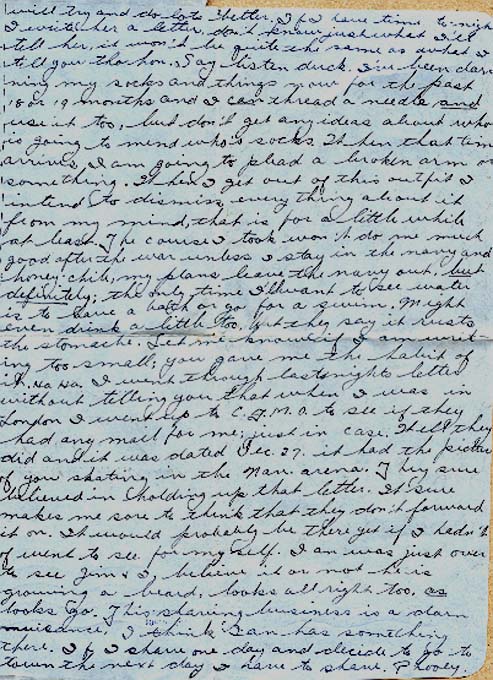 will try and do lots better. If I have time to-nigh
I write her a letter, don't know just what I'll
tell her, it won't be quite the same as what I
tell you tho hon. Say listen duck, I've been dar
ning my socks and things now for the past
18 or 19 months and I can thread a needle and
use it too, but don't get any ideas about who
is going to mend who's socks. When that time
arrives, I am going to plead a broken arm or
something. When I get out of this outfit I
intend to dismiss everything about it
from my mind, that is for a little while
at least. The course I took won't do me much
good after the war unless I stay in the navy and
honey chile, my plans leave the navy out, but
definitely; the only time I'll want to see water
is to have a bath or go for a swim. Might
even drink a little too, but they say it rusts
the stomache. Let me know if I am writ
ing too small, you gave me the habit of
it, Ha Ha. I went through last nights letter
without telling you that when I was in
London I went up to C.F.M.O. to see if they
had any mail for me, just in case. Well they
did and it was dated Dec. 27. it had the picture
of you skating in the arena. They sure
believed in holding up that letter. It sure
makes me sore to think that they don't forward
it on. It would probably be there yet if I hadn't
of went to see for my self. I was just over
to see Jim & I, believe it or not he is
growing a beard, looks all right too, as
looks go. This shaving business is a darn
nuisance. I think Ian has something
there. If I shave one day and decide to go to
town the next day I have to shave. Phooey.